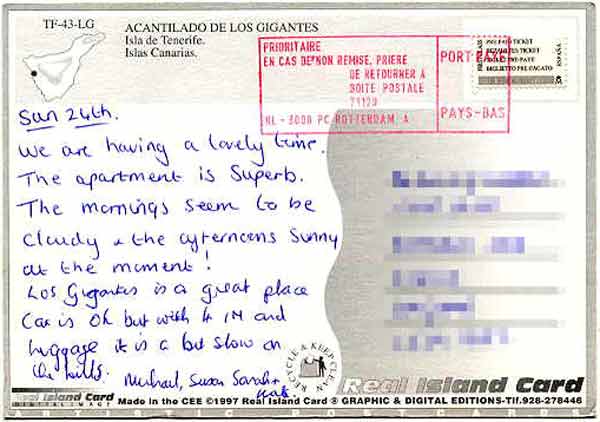 TF-43-LG
ACANTILADO DE LOS GIGANTES
Isla de Tenerife.
Islas Canarias.
PRIORITAIRE
EN CAS DE NON REMISE, PRIERE
DE RETOURNER À
BOITE POSTALE
NL - 3008 PC ROTTERDAM
PORT PAYÉ
PAYS-BAS
PRE-PAID TICKET
BIGLIETTO PRE-PAGATO
ESPAÑA
Sun 24th.
We are having a lovely time.
The apartment is Superb.
The mornings seem to be
cloudy & the afternoons sunny
at the moment!
Los Gigantes is a great place
Car is Ok but with 4 IN and
luggage it is a bit slow on
the hills.
Michael, Susan Sarah &
Kate.
RECYCLE & KEEP CLEAN
Real Island Card
DIGITAL IMAGE
Real Island Card
Made in the CEE ©1997 Real Island Card ® GRAPHIC & DIGITAL EDITIONS-Tlf.928-278446